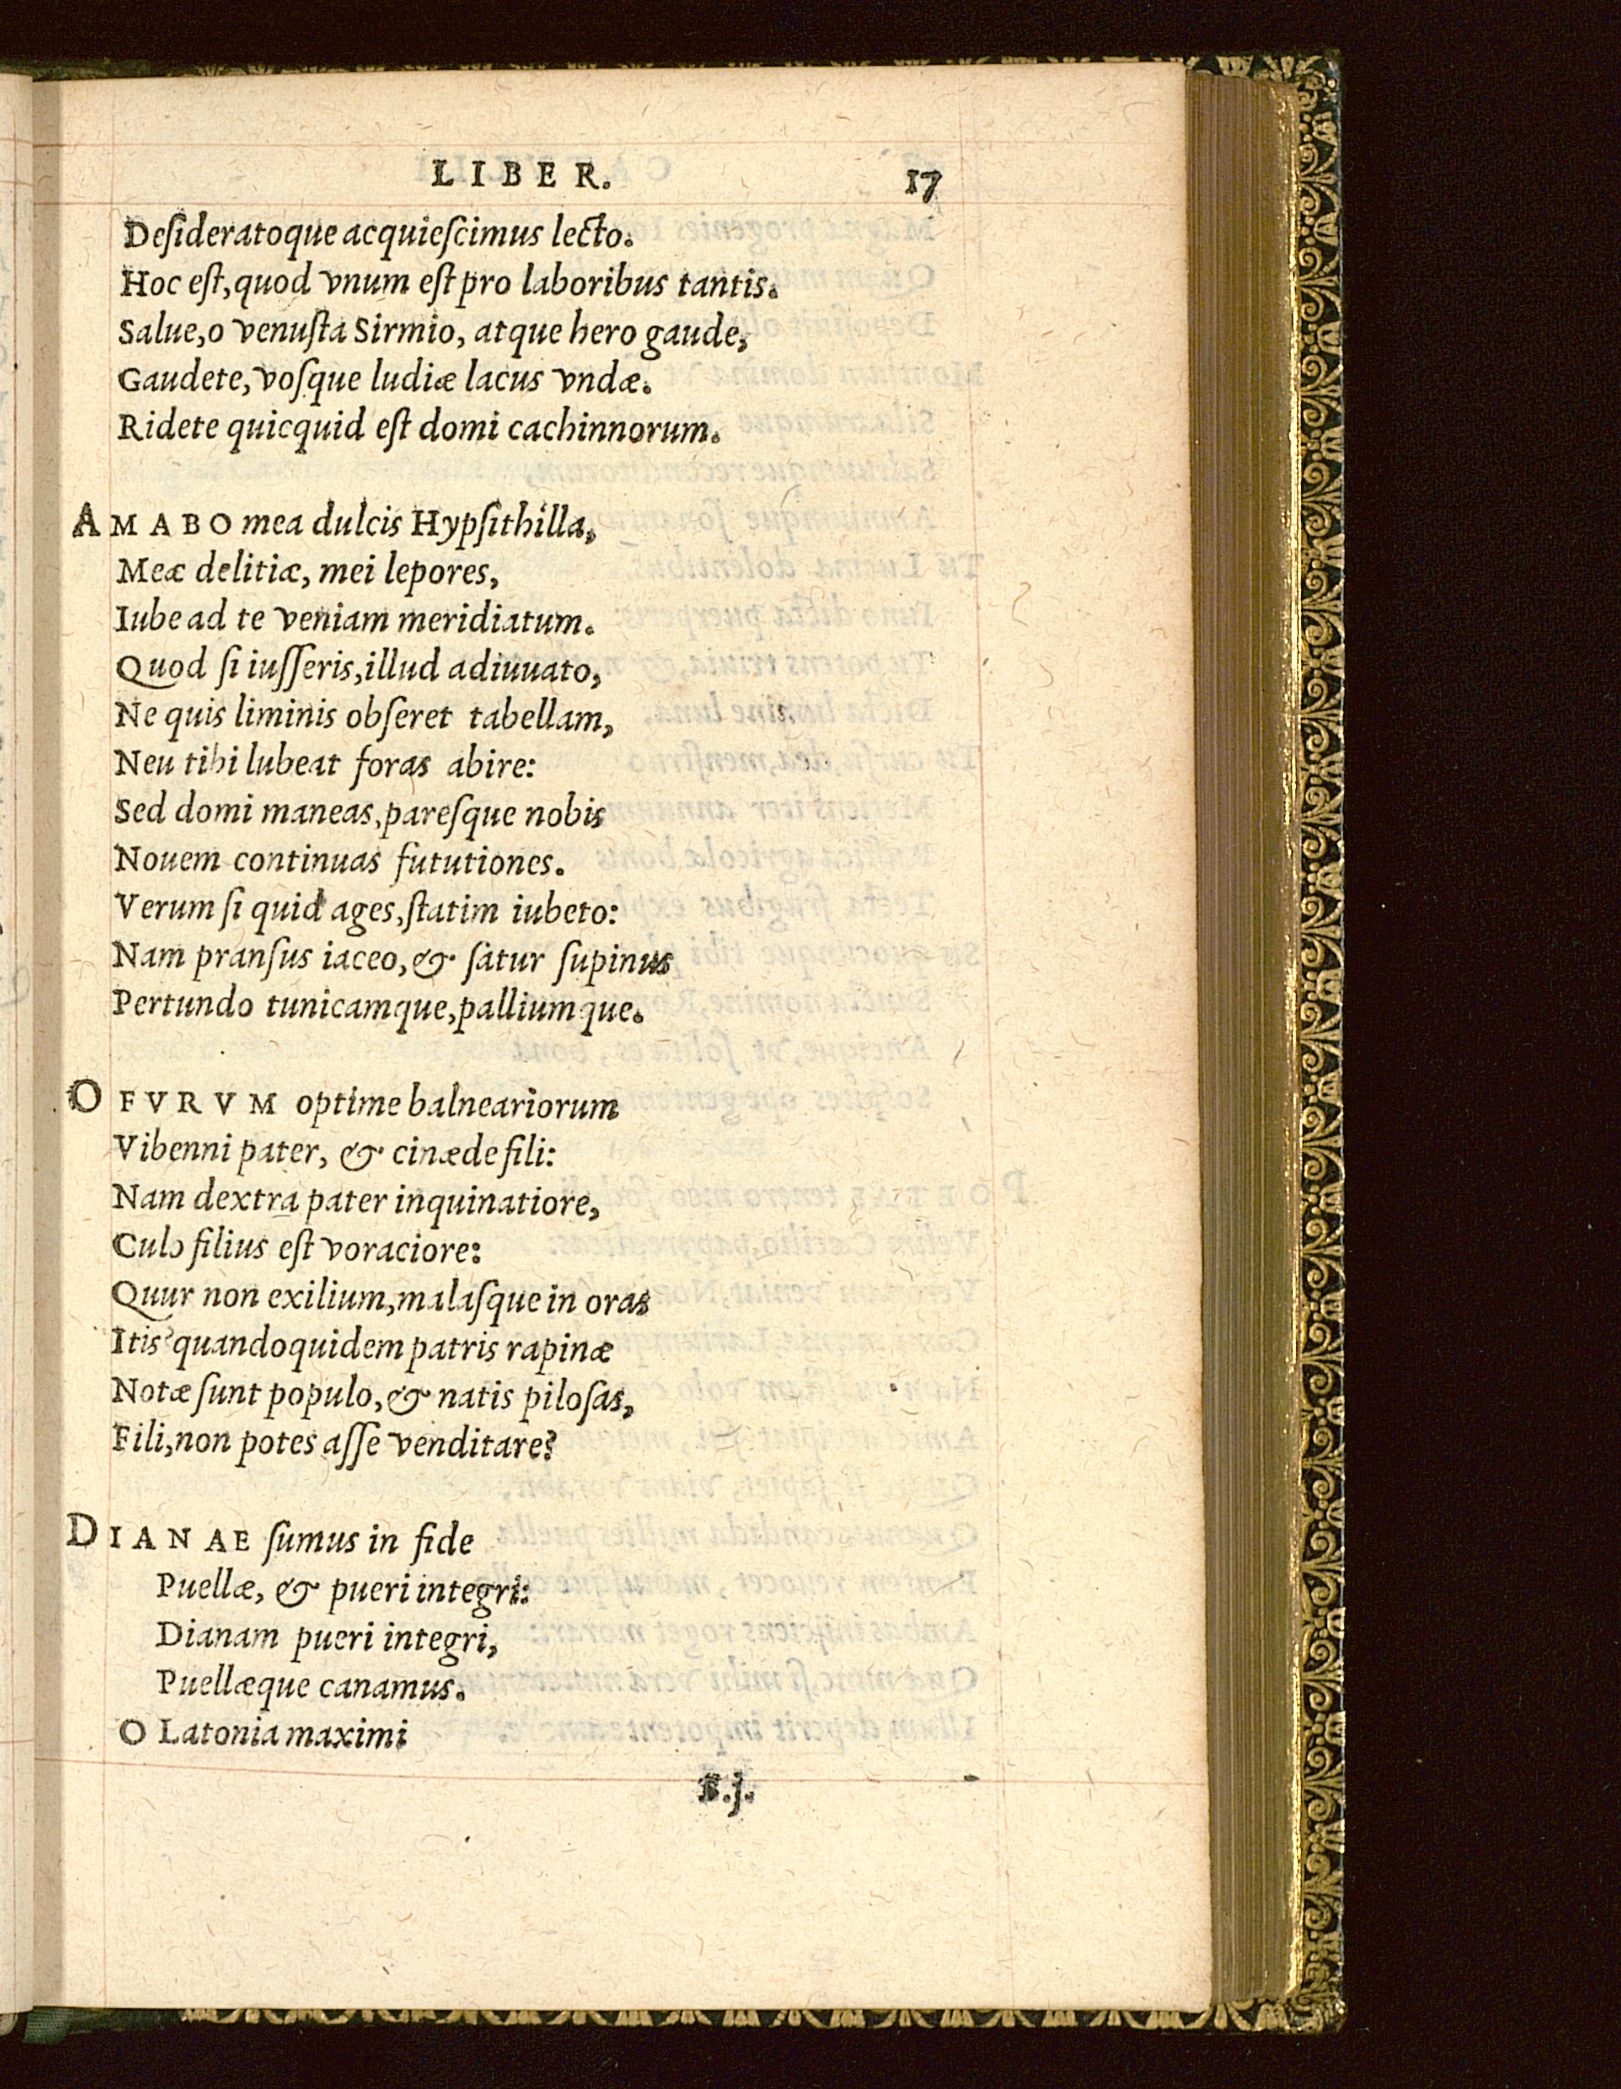 LIBER. 17
Deſideratoque acquieſcimus lecto.
Hoc eſt, quod vnum eſt pro laboribus tantis.
Salue, o venuſta Sirmio, atque hero gaude,
Gaudete, voſque ludiæ lacus vndæ.
Ridete quicquid eſt domi cachinnorum.
AMABO mea dulcis Hypſithilla,
Meæ delitiæ, mei lepores,
Iube ad te veniam meridiatum.
Quod ſi iuſſeris, illud adiuuato,
Ne quis liminis obſeret tabellam,
Neu tibi lubeat foras abire:
Sed domi maneas, pareſque nobis
Nouem continuas fututiones.
Verum ſi quid ages, ſtatim iubeto:
Nam pranſus iaceo, & ſatur ſupinus
Pertundo tunicamque, palliumque.
O FVRVM optime balneariorum
Vibenni pater, & cinæde fili:
Nam dextra pater inquinatiore,
Culo filius eſt voraciore:
Quur non exilium, malaſque in oras
Itis? quandoquidem patris rapinæ
Notæ ſunt populo, & natis piloſas,
Fili, non potes aſſe venditare?
DIANAE ſumus in fide
Puellæ, & pueri integri:
Dianam pueri integri,
Puellæque canamus.
O Latonia maximi
B.j.